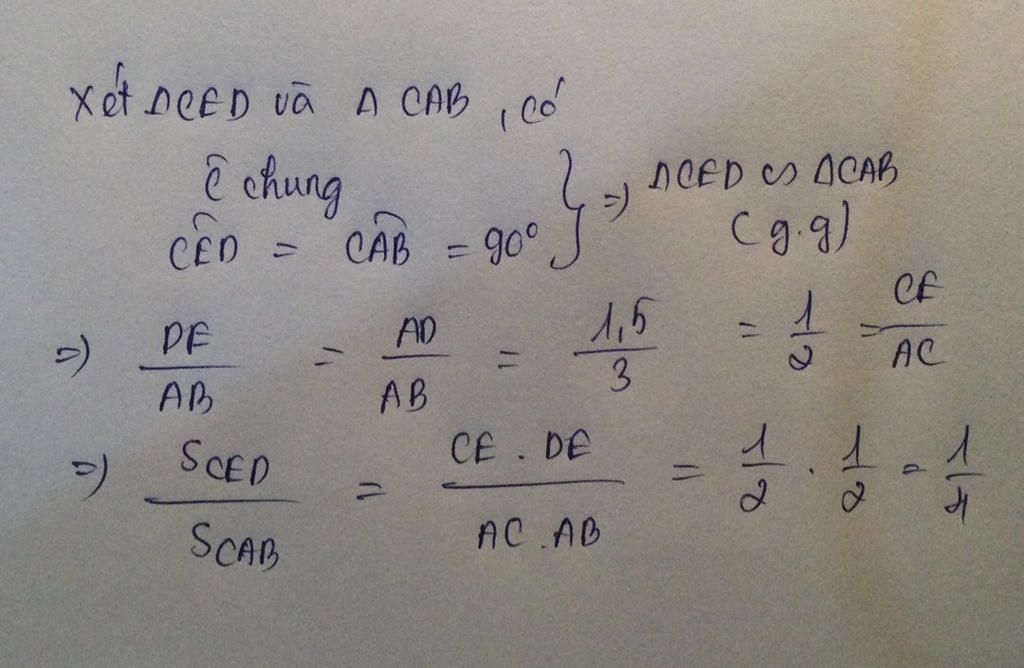 Xét ΔCED và Δ CAB , có
Ĉ chung
CÊD = CÂB = 90° } => ΔCED ∽ ΔCAB
(g.g)
=> DE/AB = AD/AB = 1,5/3 = 1/2 = CE/AC
=> S_CED/S_CAB = CE . DE/AC . AB = 1/2 . 1/2 = 1/4